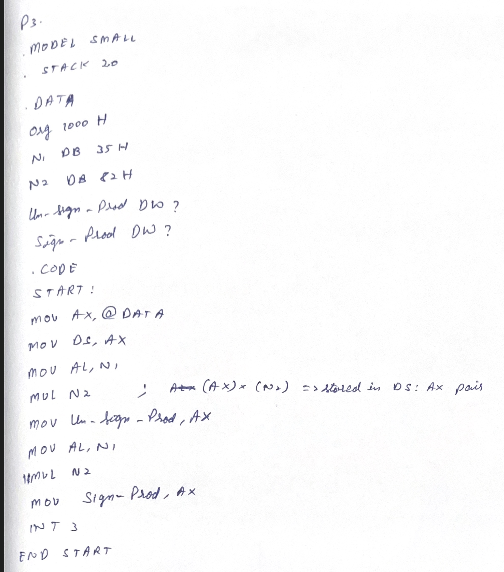 P3.
.MODEL SMALL
. STACK 20
. DATA
Org 1000 H
N1 DB 35 H
N2 DB 82 H
Un-Sign-Prod DW ?
Sign-Prod DW ?
. CODE
START:
MOV AX, @ DATA
MOV DS, AX
MOV AL, N1
MUL N2 ; (AX) * (N2) => stored in DS: AX pair
MOV Un-Sign-Prod, AX
MOV AL, N1
IMUL N2
MOV Sign-Prod, AX
INT 3
END START